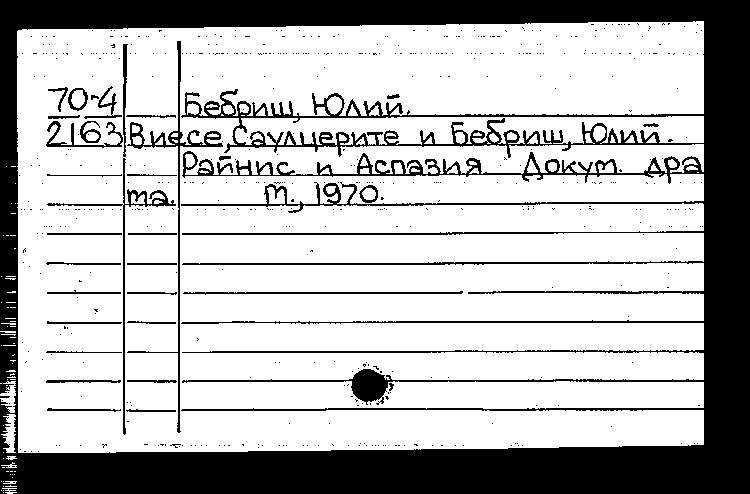 70-4 Бебриш, Юлий.
2163 Виесе, Саулцерите и Бебриш, Юлий.
Райнис и Аспазия. Докум. дра
ма. М., 1970.